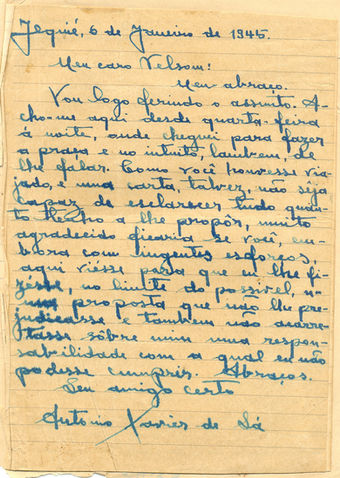 Jequié, 6 de Janeiro de 1945.
Meu caro Nelson:
Meu abraço.
Vou logo ferindo o assunto. A-
cho-me aqui desde quarta-feira
á noite, onde cheguei para fazer
a praça e no intuito, tambem, de
lhe falar. Como você houvesse via-
jado, e uma carta, talvez, não seja
capaz de esclarecer tudo quan-
to tenho a lhe propôr, muito
agradecido ficaria se você, em-
bora com ingentes esforços,
aqui viesse para que eu lhe fi-
zesse, no limite do possivel, u-
ma proposta que não lhe pre-
judicasse e tambem não acarre-
tasse sôbre mim uma respon-
sabilidade com a qual eu não
podesse cumprir. Abraços.
Seu amigo certo
Antonio Xavier de Sá